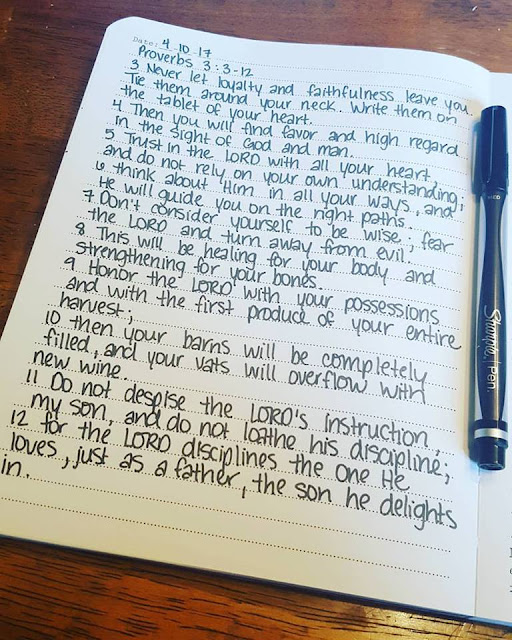 Date: 4.10.17
Proverbs 3:3-12
3 Never let loyalty and faithfulness leave you.
Tie them around your neck. Write them on
the tablet of your heart.
4 Then you will find favor and high regard
in the sight of God and man.
5 Trust in the LORD with all your heart,
and do not rely on your own understanding;
6 think about Him in all your ways, and
He will guide you on the right paths.
7 Don't consider yourself to be wise; fear
the LORD and turn away from evil.
8 This will be healing for your body and
strengthening for your bones.
9 Honor the LORD with your possessions
and with the first produce of your entire
harvest;
10 then your barns will be completely
filled, and your vats will overflow with
new wine.
11 Do not despise the LORD's instruction,
my son, and do not loathe his discipline;
12 for the LORD disciplines the one He
loves, just as a father, the son he delights
in.
Sharpie Pen